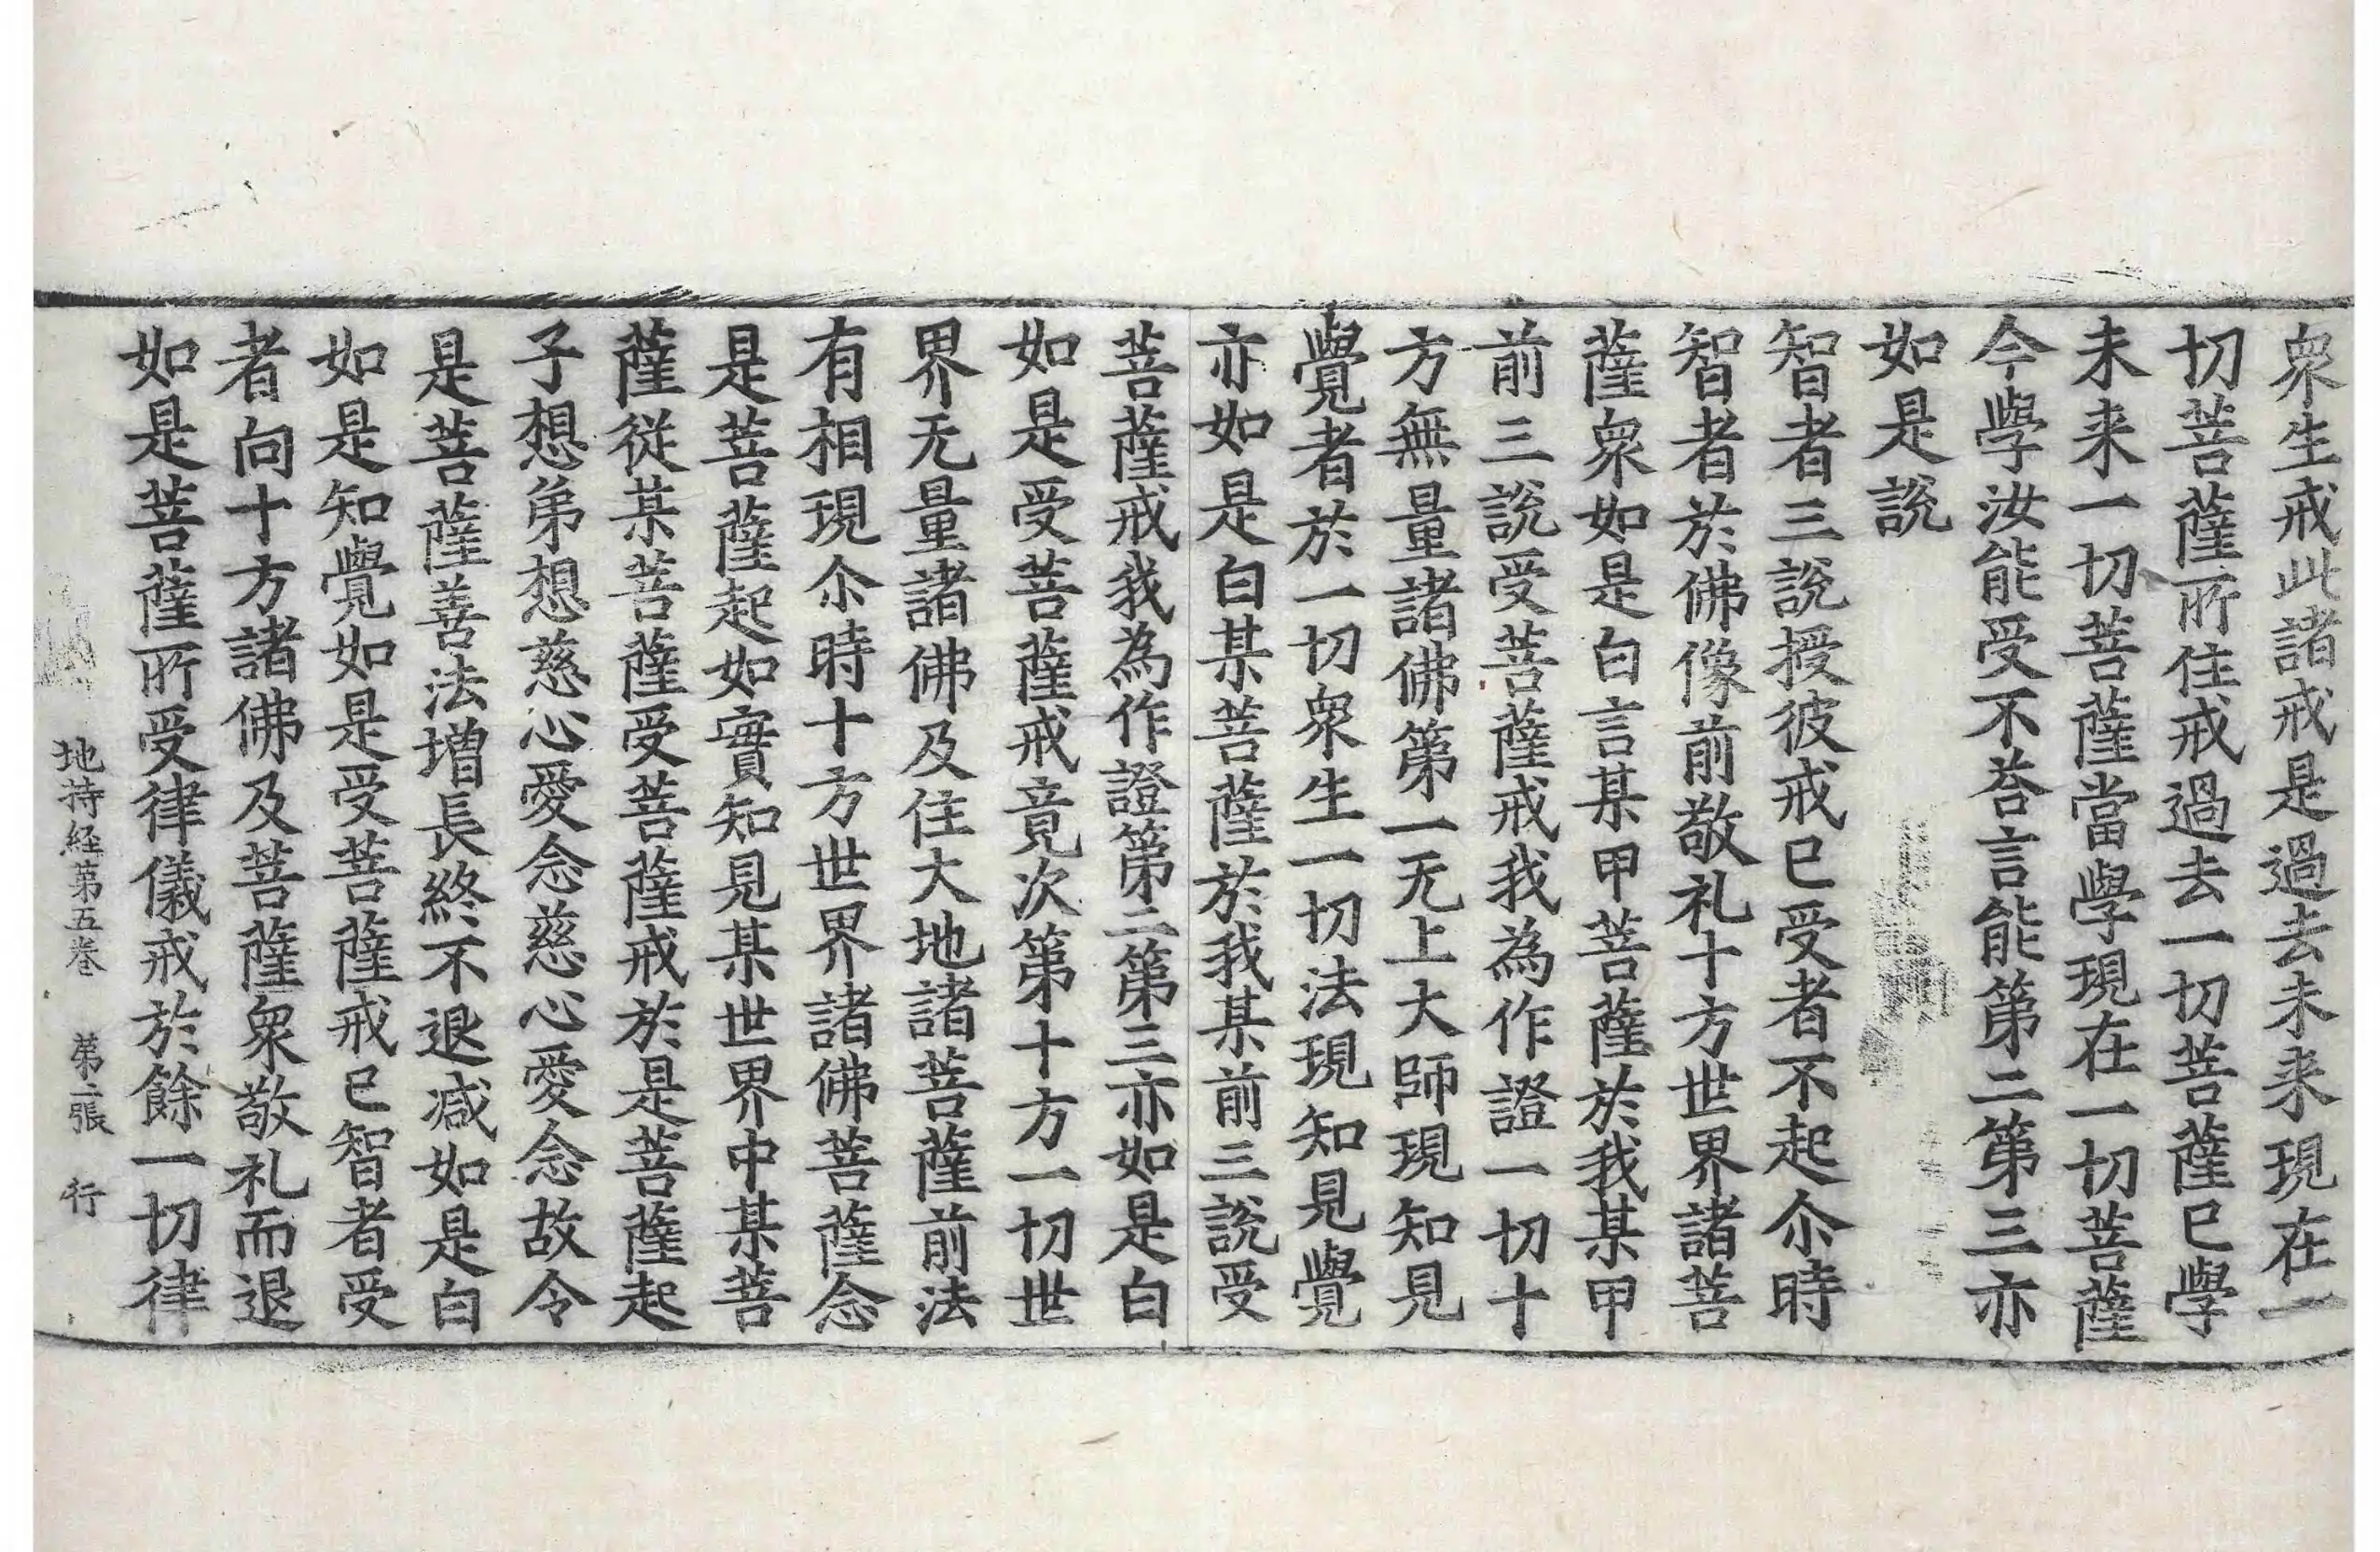 衆生戒此諸戒是過去未来現在一
切菩薩所住戒過去一切菩薩已學
未来一切菩薩當學現在一切菩薩
今學汝能受不荅言能第二第三亦
如是說
智者三說授彼戒已受者不起尒時
智者於佛像前敬礼十方世界諸菩
薩衆如是白言某甲菩薩於我某甲
前三說受菩薩戒我為作證一切十
方無量諸佛第一无上大師現知見
覺者於一切衆生一切法現知見覺
亦如是白某菩薩於我某前三說受
菩薩戒我為作證第二第三亦如是白
如是受菩薩戒竟次第十方一切世
界无量諸佛及住大地諸菩薩前法
有相現尒時十方世界諸佛菩薩念
是菩薩起如實知見某世界中某菩
薩從某菩薩受菩薩戒於是菩薩起
子想弟想慈心愛念慈心愛念故令
是菩薩善法增長終不退减如是白
如是知覺如是受菩薩戒已智者受
者向十方諸佛及菩薩衆敬礼而退
如是菩薩所受律儀戒於餘一切律
地持经第五卷 第二張 行